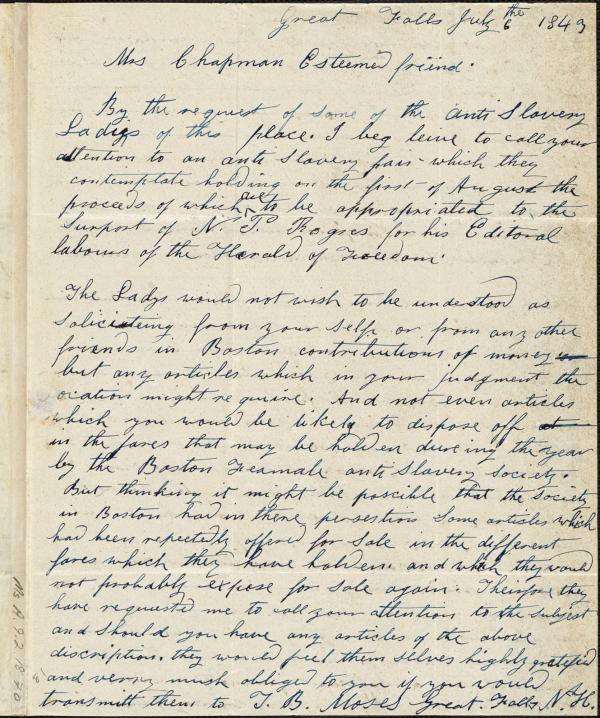 Great Falls July the 6 1843
Mrs Chapman Esteemed friend.
By the request of some of the anti Slavery
Ladies of this place. I beg leive to call your
attention to an anti Slavery fair which they
contemplate holding on the first of August the
proceeds of which are to be appropriated to the
Surport of N. P. Rogres for his Editoral
labours of the Herald of Freedom.
The Ladys would not wish to be understood as
Soliciteing from your Self, or from any other
friends in Boston contributions of money
but any articles which in your judgment the
ocation might require. And not even articles
which you would be likely to dispose off
in the fares that may be holden dureing the year
by the Boston Feamale anti Slavery Society.
But thinking it might be poscible that the Society
in Boston had in there persestion Some articles which
had been repectedly offered for Sale in the different
fares which they have holden. and which they would
not probably expose for Sale again. Therefore they
have requested me to call your attention to the subject
and should you have any articles of the above
discription. they would feel them selves highly gretified
and verry much obliged to you if you would
transmitt them to T. B. Moses Great Falls N. H.
Ms A.9.2.18.70